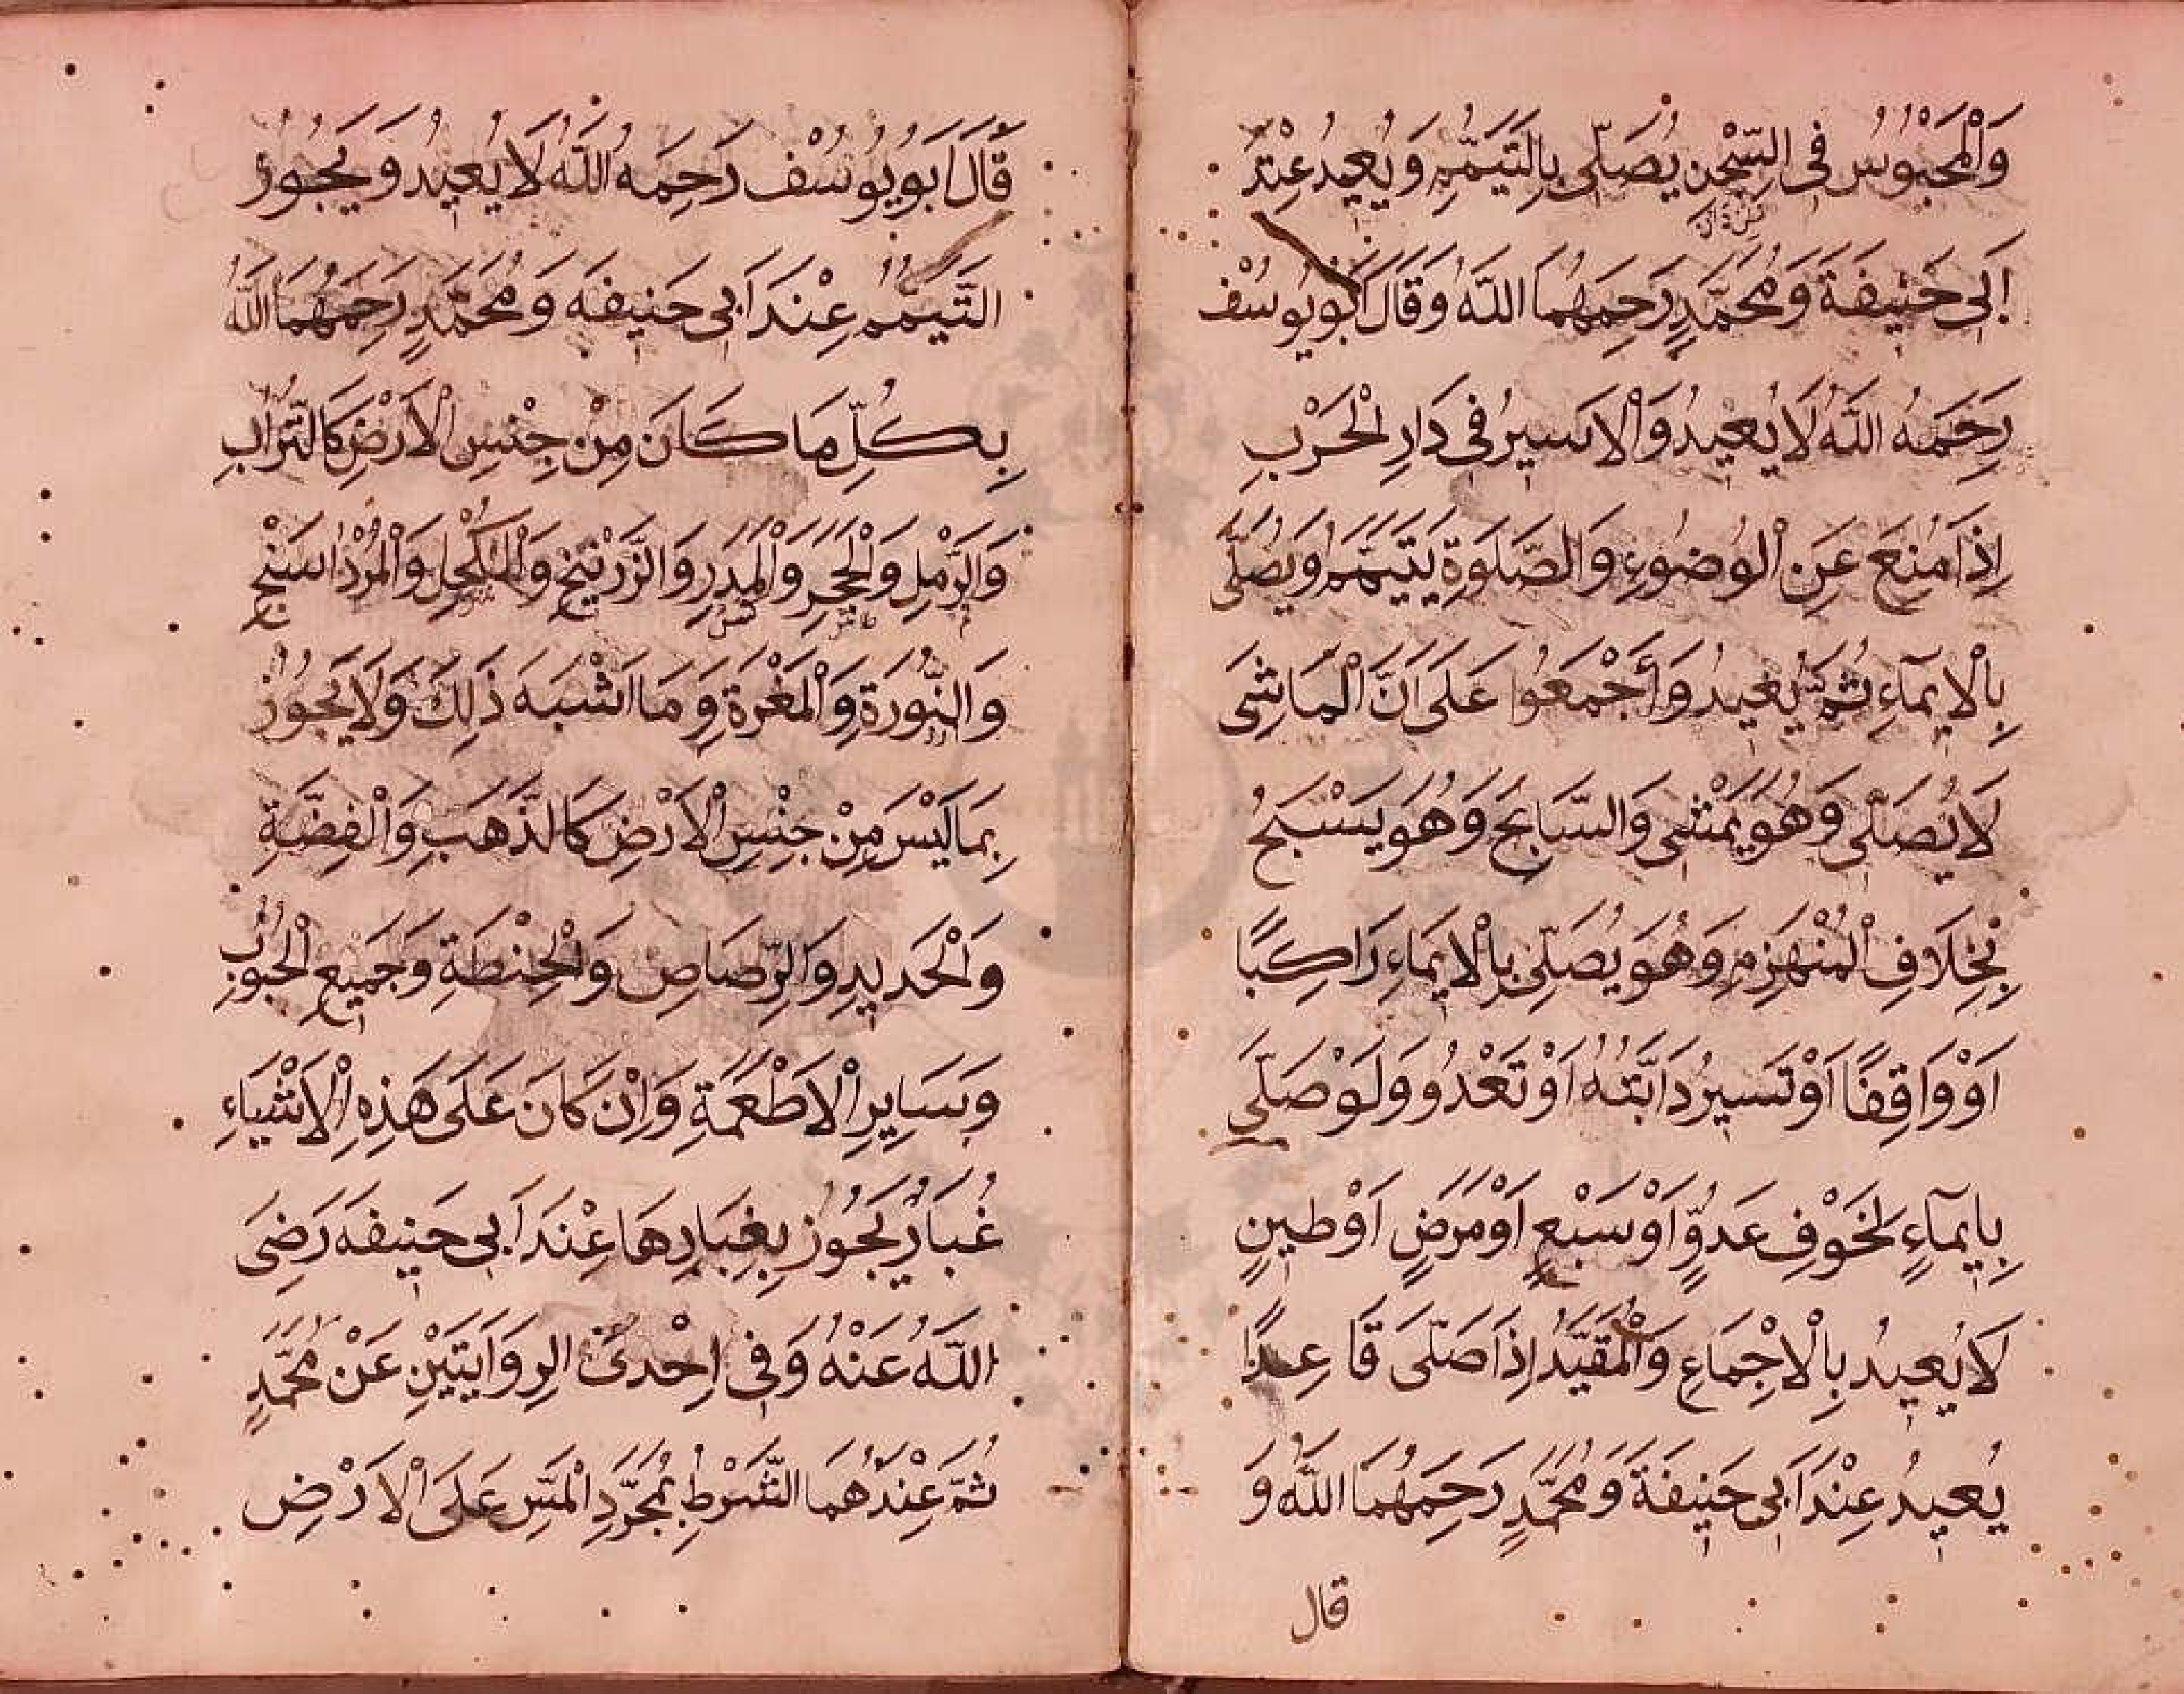 وَالْمَحْبُوْسُ فِى السِّجْنِ يُصَلِّى بِالتَّيَمُّمِ وَيُعِيْدُ عِنْدَ
اَبِى حَنِيفَةَ وَمُحَمَّدٍ رَحِمَهُمَا اللّٰهُ وَقَالَ اَبُو يُوسُف
رَحِمَهُ اللّٰهُ لَا يُعِيْدُ وَالْاَسِيرُ فِى دَارِ الْحَرْبِ
اِذَا مُنِعَ عَنِ الْوُضُوءِ وَالصَّلٰوةِ يَتَيَمَّمُ وَيُصَلِّى
بِالْاِيمَآءِ ثُمَّ يُعِيدُ وَأَجْمَعُوا عَلَى اَنَّ الْمَاشِىَ
لَا يُصَلِّى وَهُوَ يَمْشِى وَالسَّابِحُ وَهُوَ يَسْبَحُ
بِخِلَافِ الْمُنْهَزِمِ وَهُوَ يُصَلِّى بِالْاِيمَاءِ رَاكِبًا
اَوْ وَاقِفًا اَوْ تَسِيرُ دَابَّتُهُ اَوْ تَعْدُو وَلَوْ صَلَّى
بِاِيمَآءٍ لِخَوْفِ عَدُوٍّ اَوْ سَبُعٍ اَوْ مَرَضٍ اَوْ طِينٍ
لَا يُعِيدُ بِالْاِجْمَاعِ وَالْمُقَيَّدُ اِذَا صَلَّى قَاعِدًا
يُعِيدُ عِنْدَ اَبِى حَنِيفَةَ وَمُحَمَّدٍ رَحِمَهُمَا اللّٰهُ وَ
قال
قَالَ اَبُو يُوسُف رَحِمَهُ اللّٰهُ لَا يُعِيدُ وَيَجُوزُ
التَّيَمُّمُ عِنْدَ اَبِى حَنِيفَه وَمُحَمَّدٍ رَحِمَهُمَا اللّٰهُ
بِكُلِّ مَا كَانَ مِنْ جِنْسِ الْاَرْضِ كَالتُّرَابِ
وَالرَّمْلِ وَالْحَجَرِ وَالْمَدَرِ وَالزَّرْنِيْخِ وَالْكُحْلِ وَالْمُرْدَاسَنْجِ
وَالنُّورَةِ وَالْمَغْرَةِ وَمَا اَشْبَهَ ذَلِكَ وَلَا يَجُوزُ
بِمَا لَيْسَ مِنْ جِنْسِ الْاَرْضِ كَالذَّهَبِ وَالْفِضَّةِ
وَالْحَدِيدِ وَالرَّصَاصِ وَالْحِنْطَةِ وَجَمِيعِ الْحُبُوبِ
وَسَايِرِ الْاَطْعِمَةِ وَاِنْ كَانَ عَلَى هَذِهِ الْاَشْيَاءِ
غُبَارٌ يَجُوزُ بِغُبَارِهَا عِنْدَ اَبِى حَنِيفَه رَضِىَ
اللّٰهُ عَنْهُ وَفِى اِحْدَى الرِوَايَتَيْنِ عَنْ مُحَمَّدٍ
ثُمَّ عِنْدَهُمَا الشَّرْطُ بِمُجَرَّدِ الْمَسِّ عَلَى الْاَرْضِ